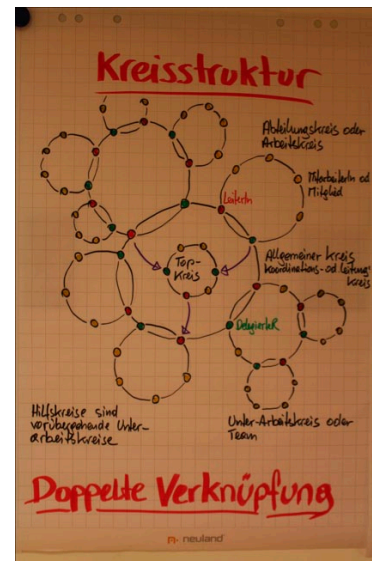 Kreisstruktur
Abteilungskreis oder
Arbeitskreis
MitarbeiterIn od
Mitglied
LeiterIn
Top-
Kreis
Allgemeiner Kreis
Koordinations- od Leitungs
kreis
DelegierteR
Hilfskreise sind
vorübergehende Unter-
arbeitskreise
Unter-Arbeitskreis oder
Team
Doppelte Verknüpfung
neuland